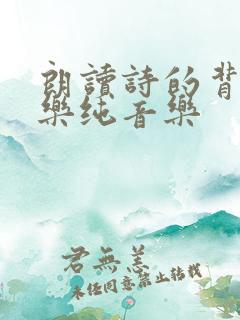 朗讀詩的背
樂纯音樂
君無恙
未经同意禁止转载